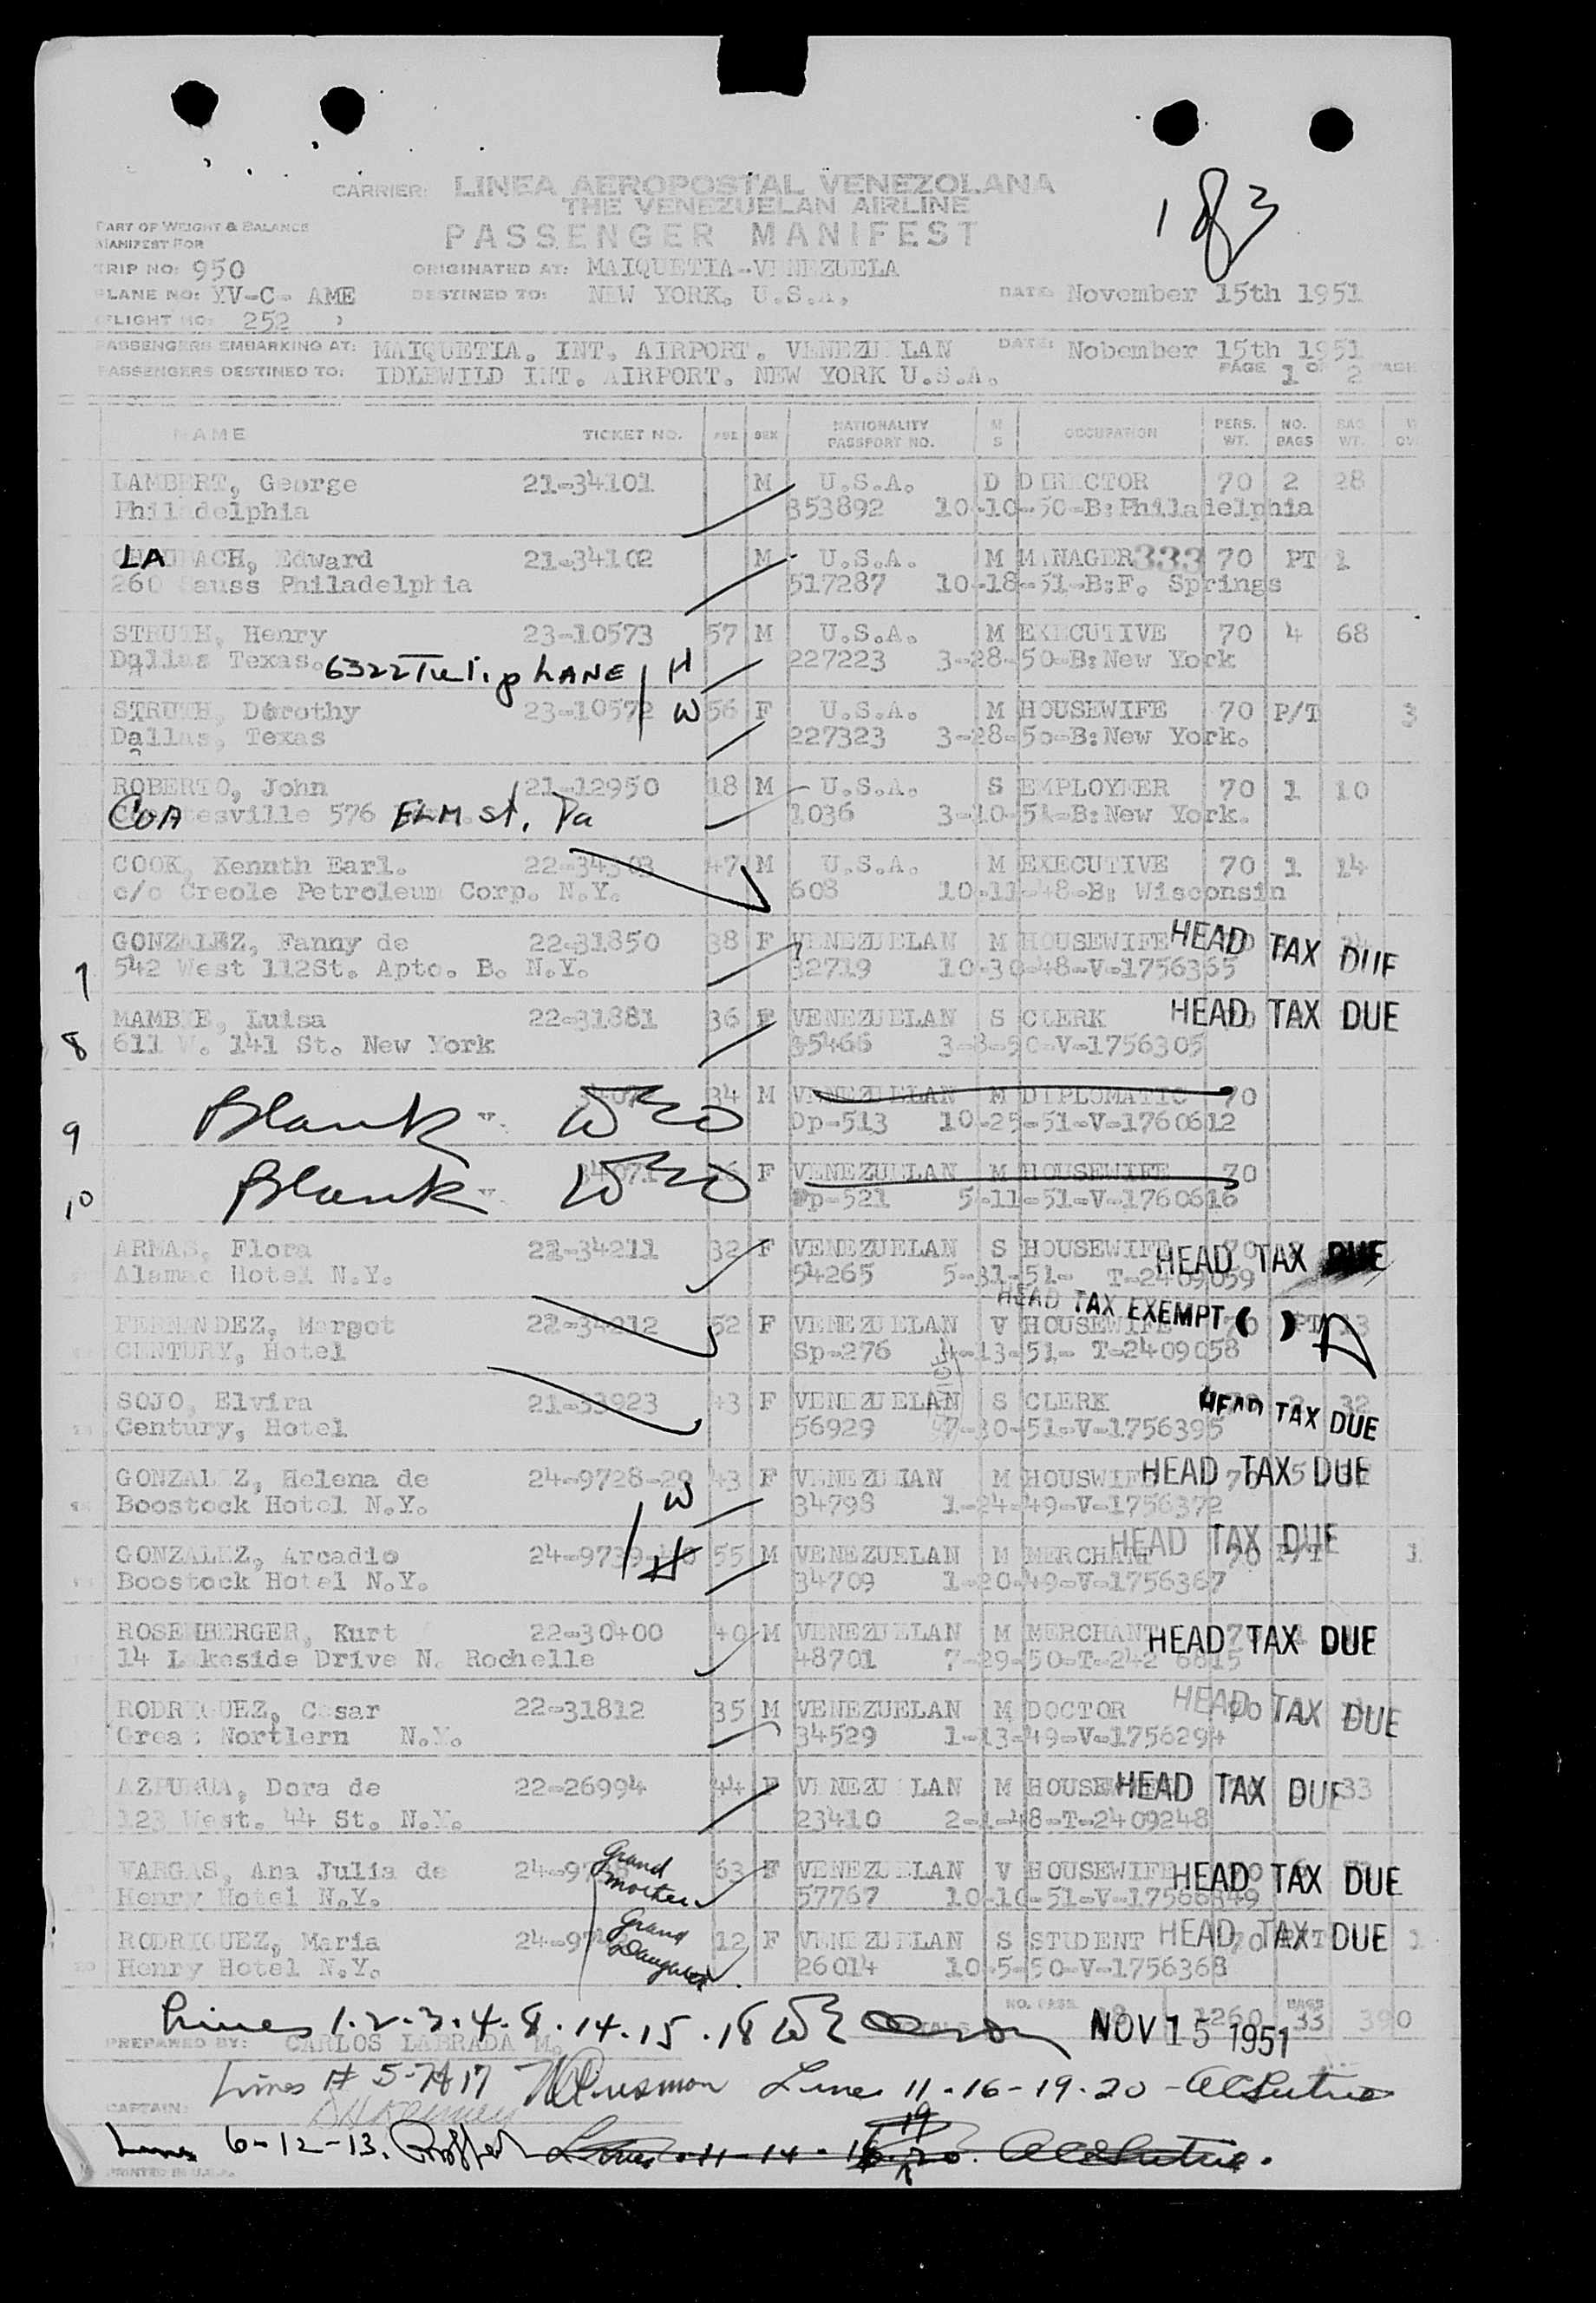 183
CARRIER: LINEA AEROPOSTAL VENEZOLANA
THE VENEZUELAN AIRLINE
PASSENGER MANIFEST
PART OF WEIGHT & BALANCE
MANIFEST FOR
TRIP NO: 950 ORIGINATED AT: MAIQUETIA-VENEZUELA
PLANE NO: YV-C- AME DESTINED TO: NEW YORK, U.S.A. DATE: November 15th 1951
(FLIGHT NO: 252 )
PASSENGERS EMBARKING AT: MAIQUETIA. INT. AIRPORT. VENEZU LAN DATE: Nobember 15th 1951
PASSENGERS DESTINED TO: IDLEWILD INT. AIRPORT. NEW YORK U.S.A. PAGE 1 OF 2
NAME TICKET NO. AGE SEX NATIONALITY PASSPORT NO. M S OCCUPATION PERS. WT. NO. BAGS BAG WT.
LAMBERT, George 21-34101 M U.S.A. D DIRECTOR 70 2 28
Philadelphia 353892 10-10-50-B:Philadelphia
LA ACH, Edward 21-34102 M U.S.A. M MANAGER 333 70 PT 1
260 auss Philadelphia 517287 10-18-51-B:F. Springs
STRUTH, Henry 23-10573 57 M U.S.A. M EXECUTIVE 70 4 68
Dallas Texas. 6322 Tulip LANE H 227223 3-28-50-B:New York
STRUTH, Dorothy 23-10572 W 56 F U.S.A. M HOUSEWIFE 70 P/T 3
Dallas, Texas 227323 3-28-50-B:New York.
ROBERTO, John 21-12950 18 M U.S.A. S EMPLOYEER 70 1 10
COA tesville 576 ELM St. Pa 1036 3-10-51-B:New York.
COOK, Kennth Earl. 22-34303 47 M U.S.A. M EXECUTIVE 70 1 14
c/o Creole Petroleum Corp. N.Y. 608 10-11-48-B: Wisconsin
GONZALEZ, Fanny de 22-31850 38 F VENEZUELAN M HOUSEWIFE HEAD TAX DUE
7 542 West 112St. Apto. B. N.Y. 32719 10-30-48-V-1756365
MAMBIE, Luisa 22-31881 36 F VENEZUELAN S CLERK HEAD TAX DUE
8 611 W. 141 St. New York 35466 3-8-50-V-1756305
34 M VENEZUELAN M DIPLOMATIC 70
9 Blank Dp-513 10-25-51-V-1760612
F VENEZUELAN M HOUSEWIFE 70
10 Blank Dp-521 5-11-51-V-1760616
ARMAS, Flora 21-34211 32 F VENEZUELAN S HOUSEWIFE HEAD TAX DUE
Alamac Hotel N.Y. 54265 5-31-51- T-2409059
HEAD TAX EXEMPT ( )
FERNANDEZ, Margot 21-34212 52 F VENEZUELAN V HOUSEWIFE 70 PT 13
CENTURY, Hotel Sp-276 4-13-51- T-2409058
SOJO, Elvira 21-33923 43 F VENEZUELAN S CLERK 32 HEAD TAX DUE
Century, Hotel 56929 7-30-51-V-1756395
GONZALEZ, Helena de 24-9728-29 43 F VENEZUEIAN M HOUSWIFE HEAD TAX DUE
Boostock Hotel N.Y. W 34798 1-24-49-V-1756372
GONZALEZ, Arcadio 24-9739-40 H 55 M VENEZUELAN M MERCHANT HEAD TAX DUE 1
Boostock Hotel N.Y. 34709 1-20-49-V-1756367
ROSEMBERGER, Kurt 22-30400 40 M VENEZUELAN M MERCHANT HEAD TAX DUE
14 Lakeside Drive N. Rochelle 48701 7-29-50-T-242 6815
RODRIGUEZ, Cesar 22-31812 35 M VENEZUELAN M DOCTOR HEAD TAX DUE
Great Nortlern N.Y. 34529 1-13-49-V-1756294
AZPURUA, Dora de 22-26994 44 F VENEZU LAN M HOUSE HEAD TAX DUE 33
123 West. 44 St. N.Y. 23410 2-1-48-T-2409248
VARGAS, Ana Julia de Grand mother 63 F VENEZUELAN V HOUSEWIFE HEAD TAX DUE
Henry Hotel N.Y. 57767 10-10-51-V-17566849
RODRIGUEZ, Maria Grand Daughter 12 F VENEZUELAN S STUDENT HEAD TAX DUE 1
20 Henry Hotel N.Y. 26014 10-5-50-V-1756368
NO. PASS. 18 1260 BAGS 33 390
Lines 1.2.3.4.8.14.15.18 NOV 15 1951
PREPARED BY: CARLOS LABRADA M.
Lines # 5-7#17 Lines 11-16-19-20
CAPTAIN:
Lines 6-12-13.
PRINTED IN U.S.A.